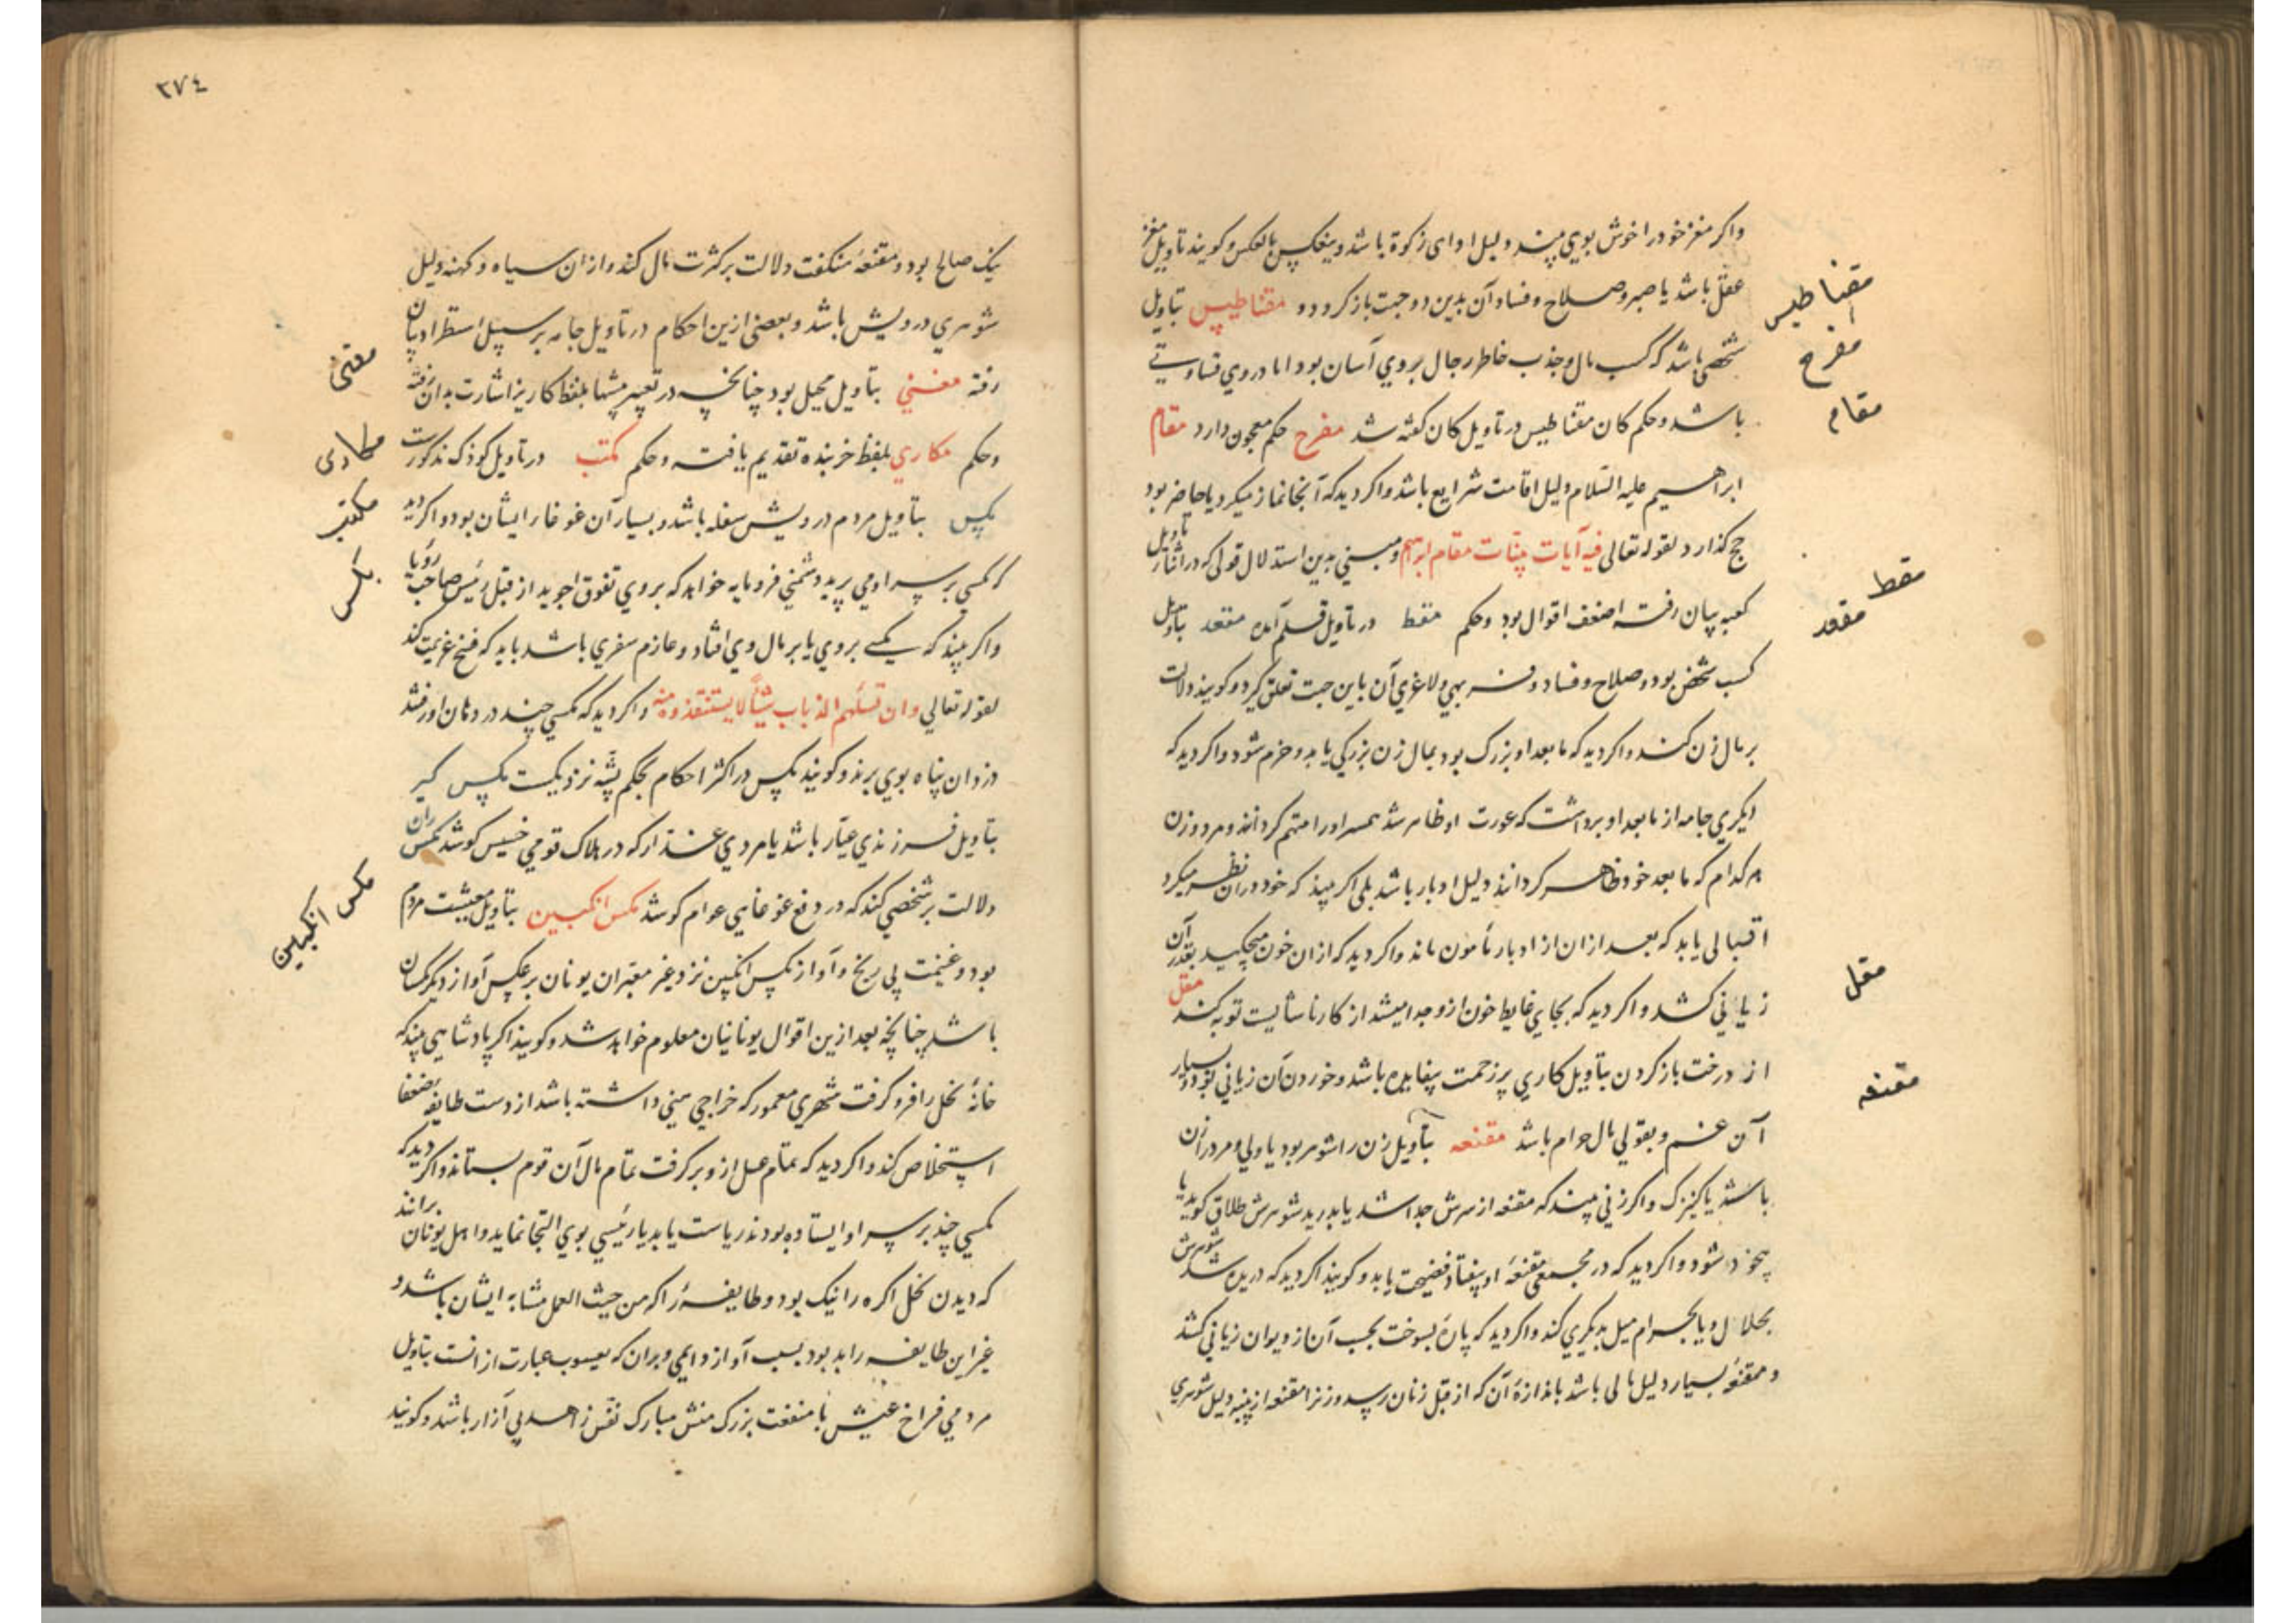 واکر مغز خود را خوش بوی بیند دلیل ادای زکوة باشد و بعکس بالعکس و کویند تاویل مغز
عقل باشد یا صبر و صلاح و فساد آن بدین دو جهت باز کردد و مقناطیس بتاویل
شخصی باشد که کسب مال و جذب خاطر رجال بر وی آسان بود اما در وی قساوتی
باشد و حکم کان مقناطیس در تاویل کان کفته شد مفرح حکم معجون دارد مقام
ابراهیم علیه السلام دلیل اقامت شرایع باشد واکر دید که آنجا نماز میکرد یا حاضر بود
حج کذارد لقوله تعالی فیه آیات بینات مقام ابرهیم و مبنی بدین استدلال قولی که در تاویل
کعبه بیان رفت اضعف اقوال بود و حکم مقط در تاویل قلم آمد مقعد بتاویل
کسب شخص بود و صلاح و فساد و فربهی و لاغری آن باین جهت تعلق کیرد و کویند دلالت
بر مال زن کند واکر دید که ما بعد او بزرک بود بمال زن بزرکی یابد و خرم شود واکر دید که
دیکری جامه از ما بعد او برداشت که عورت او ظاهر شد همسر او را متهم کردانند و مرد و زن
هر کدام که ما بعد خود ظاهر کردانند دلیل ادبار باشد بلی اکر بیند که خود در آن نظر میکرد
اقبالی یابد که بعد از آن از ادبار مأمون ماند واکر دید که ازان خون میچکید بقدر آن
زیانی کشد واکر دید که بجای غایط خون ازو جدا میشد از کار ناشایست توبه کند مقل
از درخت باز کردن بتاویل کاری پر زحمت بیفایده باشد و خوردن آن زیانی بود و بسیار
آن غم و بقولی مال حرام باشد مقنعه بتاویل زن را شوهر بود یا ولی و مرد را زن
باشد یا کنیزک واکر زنی بیند که مقنعه از سرش جدا شد یا بدرید شوهرش طلاق کوید یا
بیخود شود واکر دید که در مجمعی مقنعه او بیفتاد فضیحت یابد و کویند اکر دید که دریده شد شوهرش
بحلال و یا بحرام میل بدیکری کند واکر دید که پاره بسوخت بحسب آن از دیوان زیانی کشد
و مقنعه بسیار دلیل مالی باشد باندازه آن که از قبل زنان رسد و زنرا مقنعه از پنبه دلیل شوهری
مقناطیس
مفرح
مقام
مقط
مقعد
مقل
مقنعه
٢٧٤
نیک صالح بود و مقنعه منکفت دلالت بر کثرت مال کند و ازان سیاه و کهنه دلیل
شوهری درویش باشد و بعضی ازین احکام در تاویل جامه بر سبیل استطراد بیان
رفته مغنی بتاویل محیل بود چنانچه در تعبیر پیشها بلفظ کاریز اشارت بدان رفته
و حکم مکاری بلفظ خربنده تقدیم یافت و حکم مکتب در تاویل کودک مذکورست
مکس بتاویل مردم درویش سفله باشد و بسیار آن غوغا را ایشان بود واکر دید
که مکسی بر سر او می پرید دشمنی فرومایه خواهد که بر وی تفوق جوید از قبل رئیس صاحب رؤیا
واکر بیند که مکسی بر وی یا بر مال وی افتاد و عازم سفری باشد باید که فسخ عزیمت کند
لقوله تعالی وان تسلبهم الذباب شیأ لا یستنقذوه منه واکر دید که مکسی چند در دهان او رفتند
دزدان پناه بوی برند و کویند مکس در اکثر احکام بحکم پشه نزدیکست مکس کیر
بتاویل فرزندی عیار باشد یا مردی غدار که در هلاک قومی خسیس کوشد مکس ران
دلالت بر شخصی کند که در دفع غوغایی عوام کوشد مکس انکبین بتاویل معیشت مردم
بود و غنیمت بی رنج و آواز مکس انکبین نزد غیر معبران یونان بر عکس آواز دیکر مکسان
باشد چنانچه بعد ازین اقوال یونانیان معلوم خواهد شد و کویند اکر پادشاهی بیند که
خانه نحل را فرو کرفت شهری معمور که خراجی مبنی داشته باشد از دست طایفه ضعفا
استخلاص کند واکر دید که تمام عسل ازو بر کرفت تمام مال آن قوم بستاند واکر دید که
مکسی چند بر سر او ایستاده بودند ریاست یابد یا رئیسی بوی التجا نماید و اهل یونان برانند
که دیدن نحل اکره را نیک بود و طایفه را که من حیث العمل مشابه ایشان باشد و
غیر این طایفه را بد بود بسبب آواز و ایمی و بران که یعسوب عبارت ازانست بتاویل
مردمی فراخ عیش با منفعت بزرک منش مبارک نفس زاهد بی آزار باشد و کویند
مغنی
مکاری
مکتب
مکس
مکس انکبین